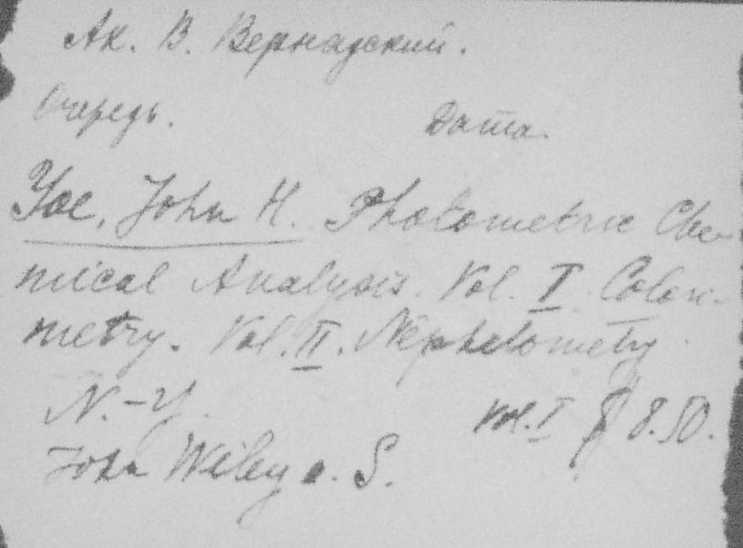 Ак. В. Вернадский.
Очередь. Дата.
Yoe, John H. Photometric Che-
mical Analysis. Vol. I. Colori-
metry. Vol. II. Nephelometry.
N.-Y. Vol. I $ 8.50.
John Wiley a. S.